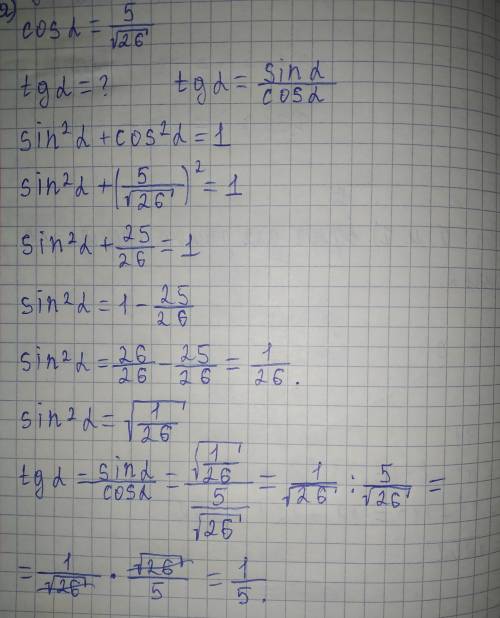 2)
cosα = 5/√26
tgα = ? tgα = sinα/cosα
sin²α + cos²α = 1
sin²α + (5/√26)² = 1
sin²α + 25/26 = 1
sin²α = 1 - 25/26
sin²α = 26/26 - 25/26 = 1/26.
sin²α = √(1/26)
tgα = sinα/cosα = √(1/26)/(5/√26) = 1/√26 : 5/√26 =
= 1/√26 · √26/5 = 1/5.